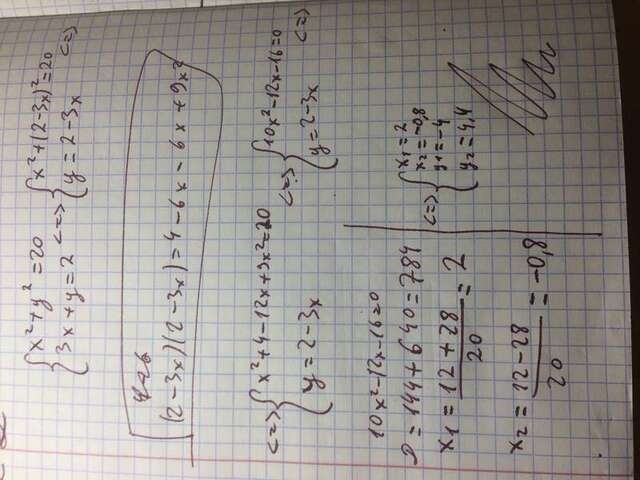 {x²+y²=20 <=> {x²+(2-3x)²=20
{3x+y=2 {y=2-3x <=>
(2-3x)(2-3x)=4-6x-6x+9x²
<=> {x²+4-12x+9x²=20 <=> {10x²-12x-16=0 <=>
{y=2-3x {y=2-3x
10x²-12x-16=0
D=144+640=784
x₁=(12+28)/20=2
x₂=(12-28)/20=-0,8
<=> {x₁=2
x₂=-0,8
y₁=-4
y₂=4,4